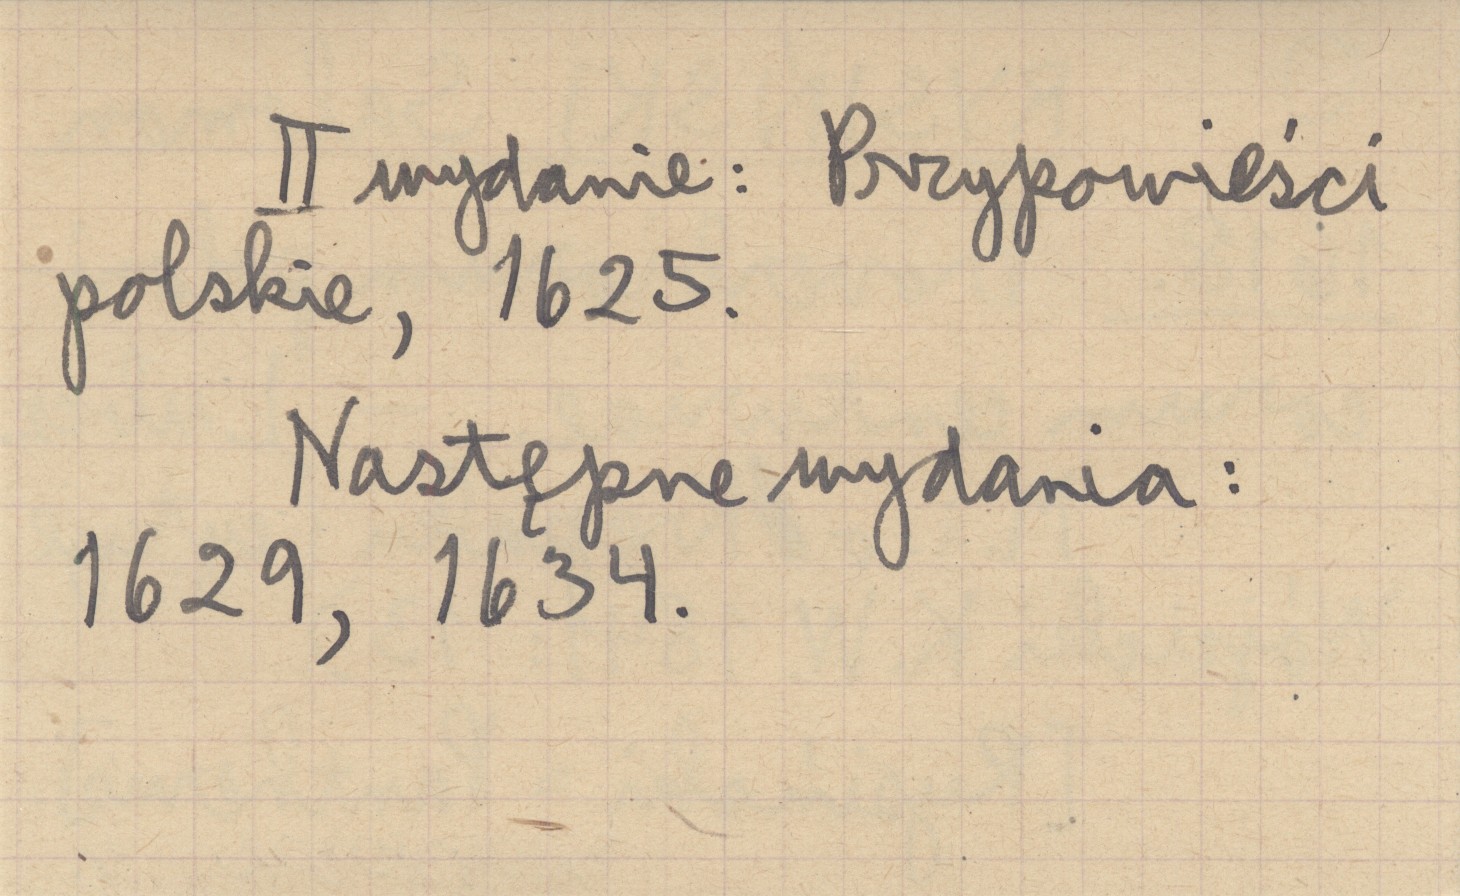 II wydanie: Przypowieści
polskie, 1625.
Następne wydania:
1629, 1634.